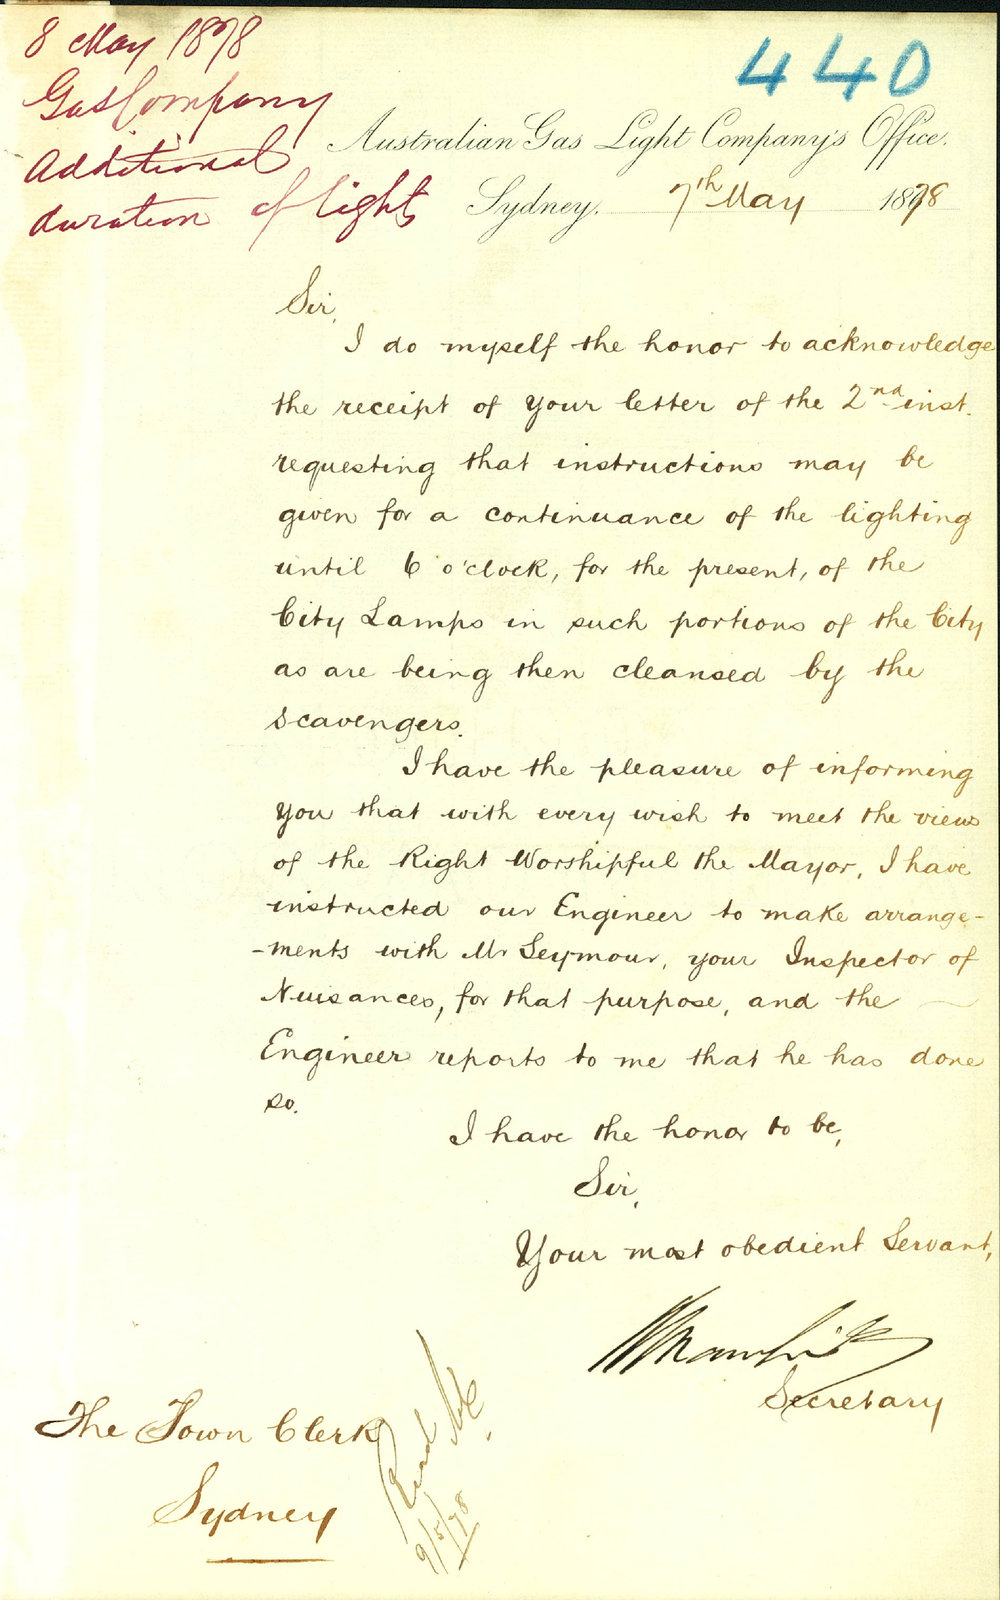 8 May 1878
Gas Company
Additional
duration of light
440
Australian Gas Light Company's Office.
Sydney. 7th May 1878
Sir,
I do myself the honor to acknowledge
the receipt of your letter of the 2nd inst.
requesting that instructions may be
given for a continuance of the lighting
until 6 o'clock, for the present, of the
City Lamps in such portions of the City
as are being then cleansed by the
Scavengers.
I have the pleasure of informing
you that with every wish to meet the views
of the Right Worshipful the Mayor, I have
instructed our Engineer to make arrange-
-ments with Mr Seymour, your Inspector of
Nuisances, for that purpose, and the
Engineer reports to me that he has done
so.
I have the honor to be,
Sir,
Your most obedient Servant,
Secretary
The Town Clerk
Sydney
9/5/78